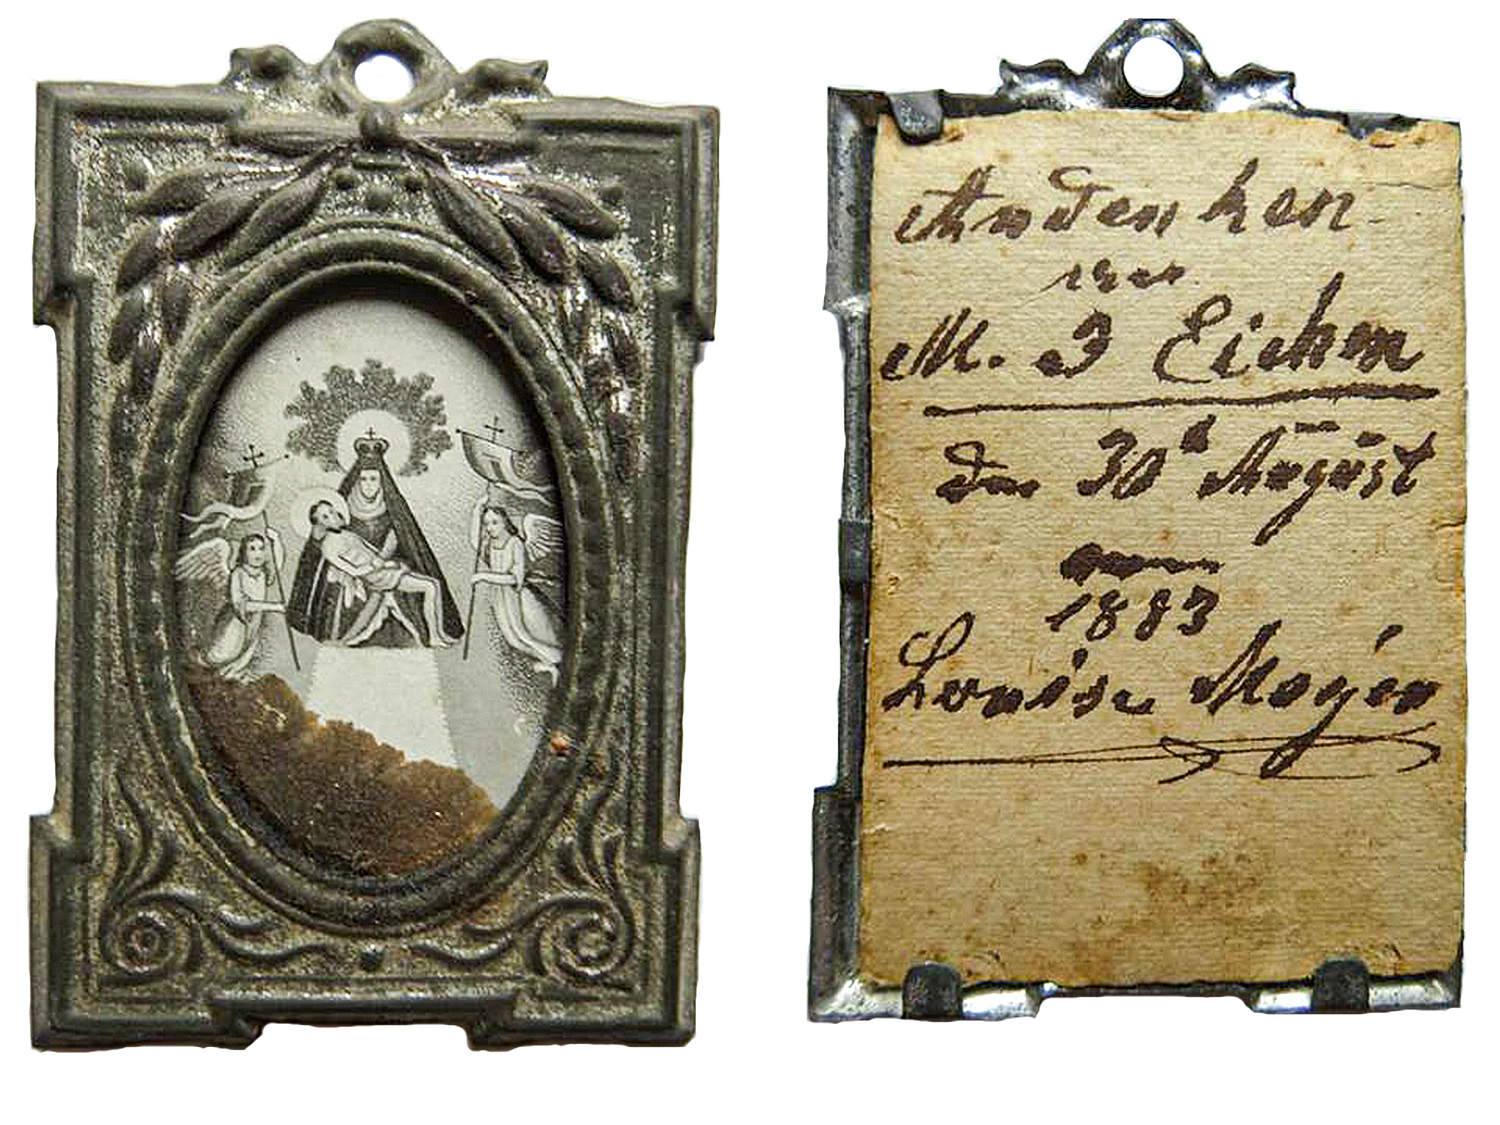 Andenken
von
M. J Eichm
den 30t August
1883
Louise Moyen